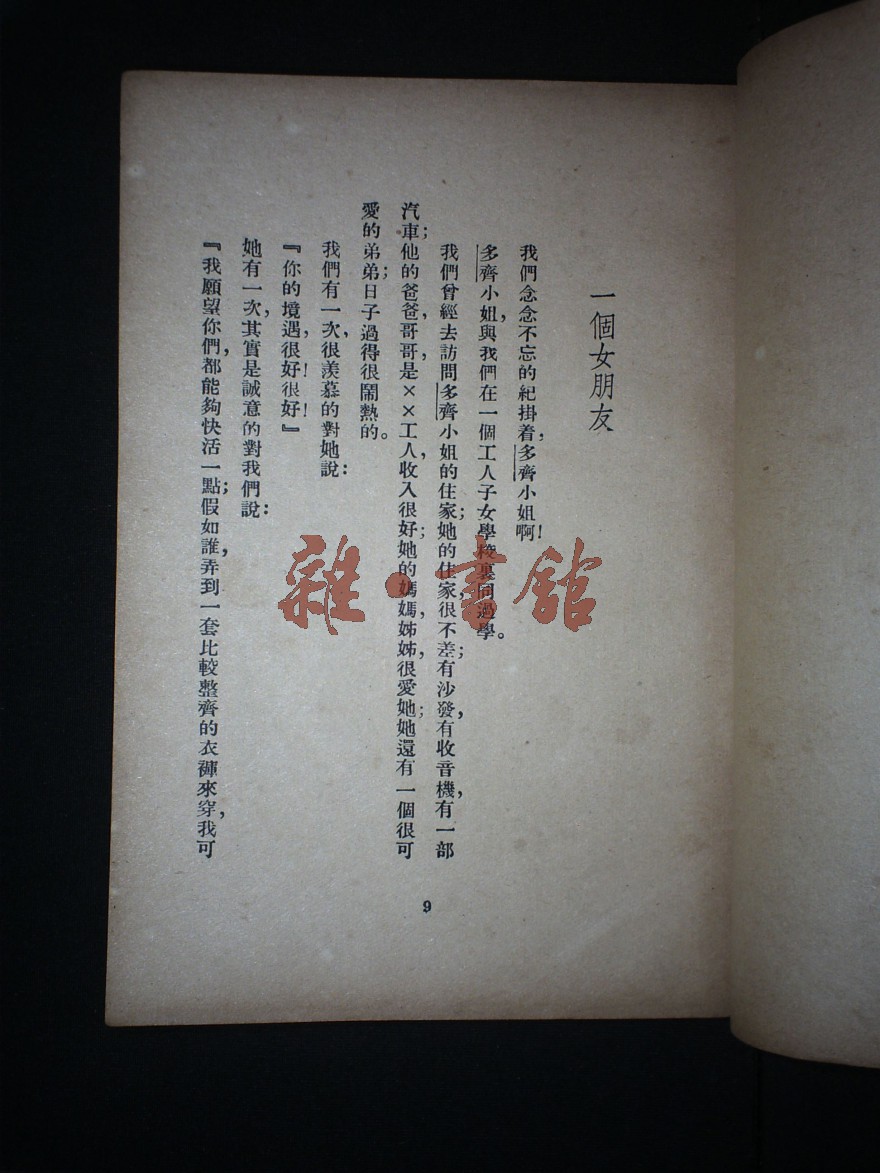 一個女朋友
我們念念不忘的紀掛着,多齊小姐啊!
多齊小姐,與我們在一個工人子女學校裏同過學。
我們曾經去訪問多齊小姐的住家;她的住家很不差;有沙發,有收音機,有一部
汽車;他的爸爸,哥哥,是××工人,收入很好;她的媽媽,姊姊,很愛她;她還有一個很可
愛的弟弟;日子過得很鬧熱的。
我們有一次,很羨慕的對她說:
『你的境遇,很好!很好!』
她有一次,其實是誠意的對我們說:
『我願望你們,都能夠快活一點;假如誰,弄到一套比較整齊的衣褲來穿,我可
9
雜·書館